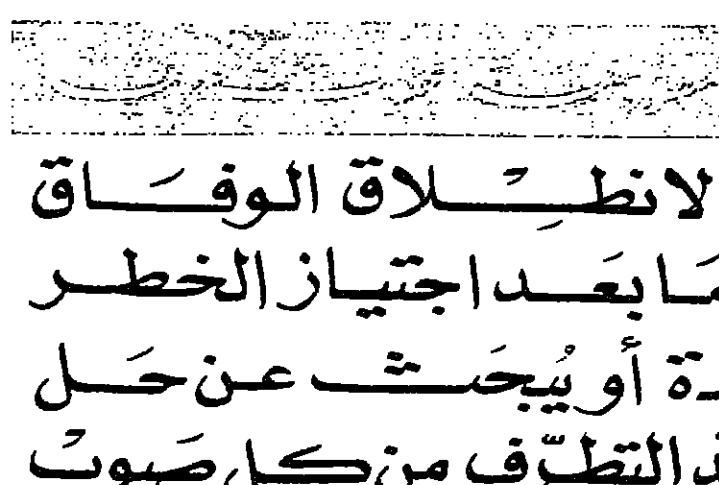 لانطلاق الوفاق
مَا بعَد اجتياز الخطر
أو يُبحَث عن حَل
التطرّف من كل صَوبْ